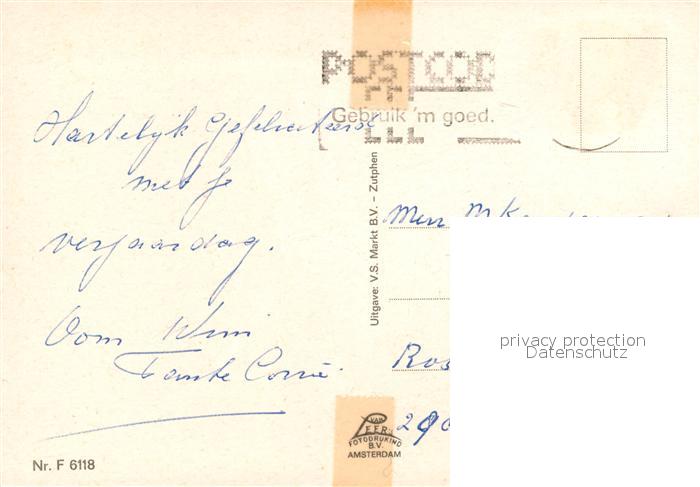 POSTCODE
Gebruik 'm goed.
Hartelijk Gefeliciteerd
met je
verjaardag.
Oom Wim
Tante Corrie.
Uitgave: V.S. Markt B.V. – Zutphen
privacy protection
Datenschutz
VAN
LEER'S
FOTODRUKIND
B.V.
AMSTERDAM
Nr. F 6118